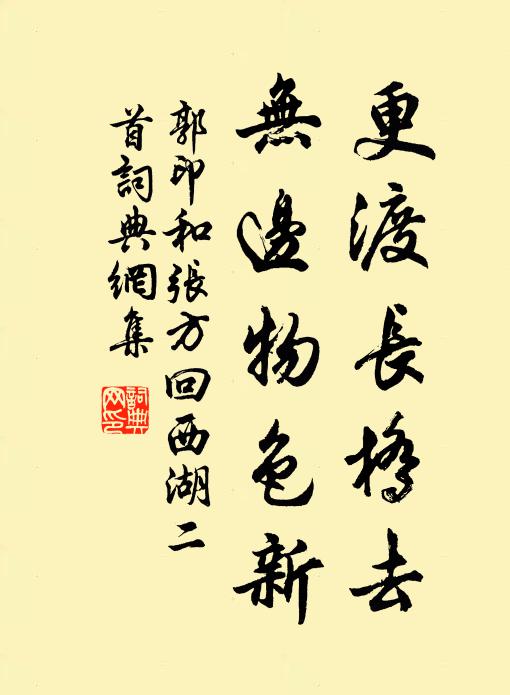 更渡長橋去
無邊物色新
郭印和張方回西湖二
首詞典網集
詞典
网印